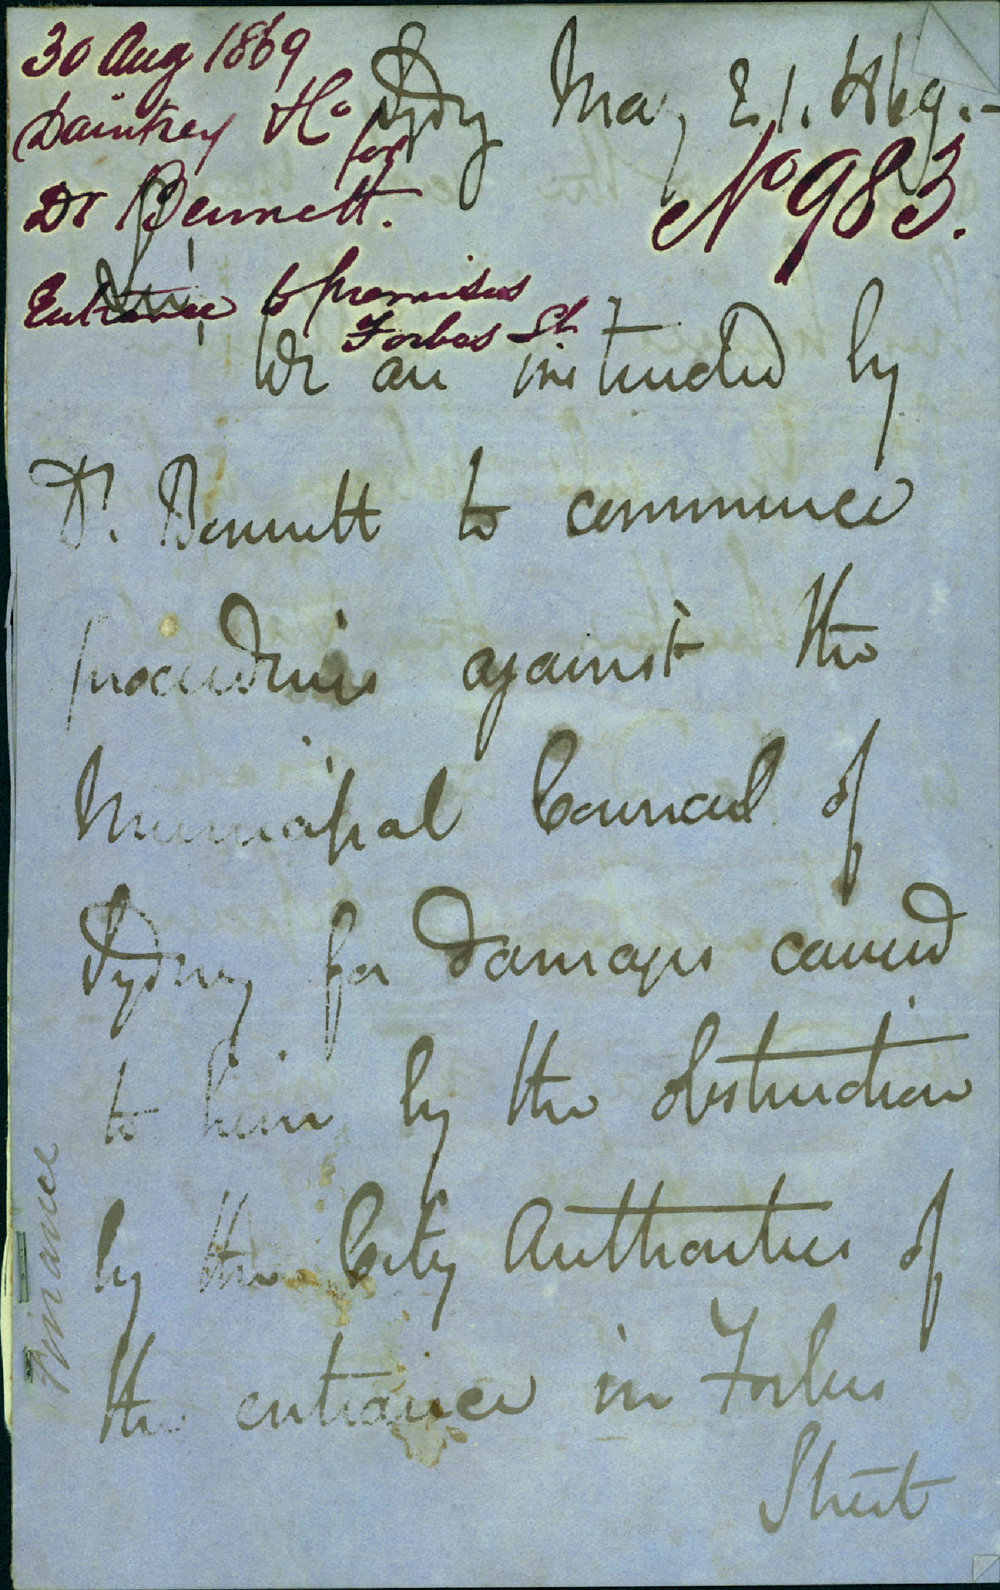 30 Aug 1869
Daintrey Ho
for
Dr Bennett.
Entrance to premises
Forbes St
Sydy May 21. 1869.-
No 983.
Sir,
We are instructed by
Dr. Bennett to commence
proceedings against the
Municipal Council of
Sydney for damages caused
to him by the obstruction
by the City Authorities of
the entrance in Forbes
Street
Finance